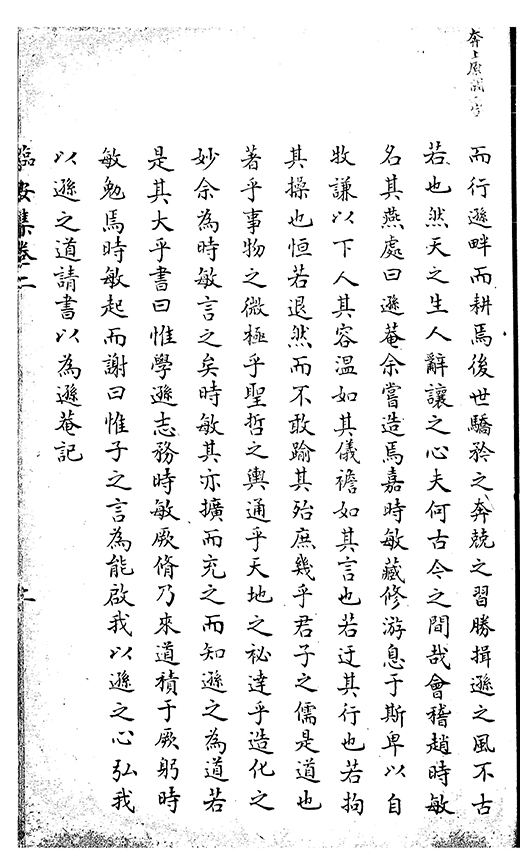 而行遜畔而耕焉後世驕矜之奔競之習勝揖遜之風不古
若也然天之生人辭讓之心夫何古今之間哉會稽趙時敏
名其燕處曰遜菴余嘗造焉嘉時敏藏修游息于斯卑以自
牧謙以下人其容温如其儀襜如其言也若迂其行也若拘
其操也恒若退然而不敢踰其殆庶幾乎君子之儒是道也
著乎事物之微極乎聖哲之輿通乎天地之祕達乎造化之
妙余為時敏言之矣時敏其亦擴而充之而知遜之為道若
是其大乎書曰惟學遜志務時敏厥脩乃來道積于厥躬時
敏勉焉時敏起而謝曰惟子之言為能啟我以遜之心弘我
以遜之道請書以為遜菴記
臨安集卷二